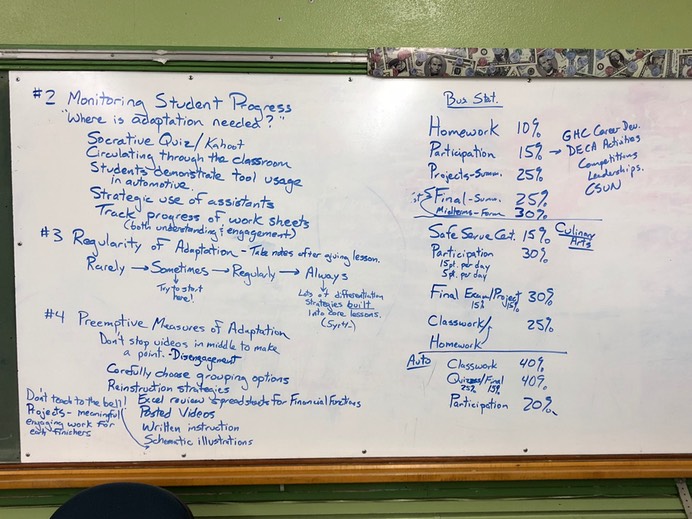 #2 Monitoring Student Progress
"Where is adaptation needed?"
Socrative Quiz/Kahoot
Circulating through the classroom
Students demonstrate tool usage
in automotive.
Strategic use of assistants
Track progress of work sheets
(both understanding & engagement)
#3 Regularity of Adaptation - Take notes after giving lesson.
Rarely → Sometimes → Regularly → Always
Try to start
here!
Lots of differentiation
strategies built
into core lessons.
(5yrt-)
#4 Preemptive Measures of Adaptation
Don't stop videos in middle to make
a point. - Disengagement
Carefully choose grouping options
Reinstruction strategies
Excel review spreadsheets for Financial Functions
Posted Videos
Written instruction
Schematic illustrations
Don't teach to the bell!
Projects - meaningful
engaging work for
early finishers
Bus Stat.
Homework 10%
Participation 15% →
Projects-Summ. 25%
Final-Summ. 25%
Midterms-Form 30%
GHC Career Dev.
DECA Activities
Competitions
Leaderships.
CSUN
Culinary
Arts
Safe Serve Cert. 15%
Participation 30%
15pt. per day
5pt. per day
Final Exam/Project 30%
15% 15%
Classwork/ 25%
Homework
Auto
Classwork 40%
Quizzes/Final 40%
25% 15%
Participation 20%